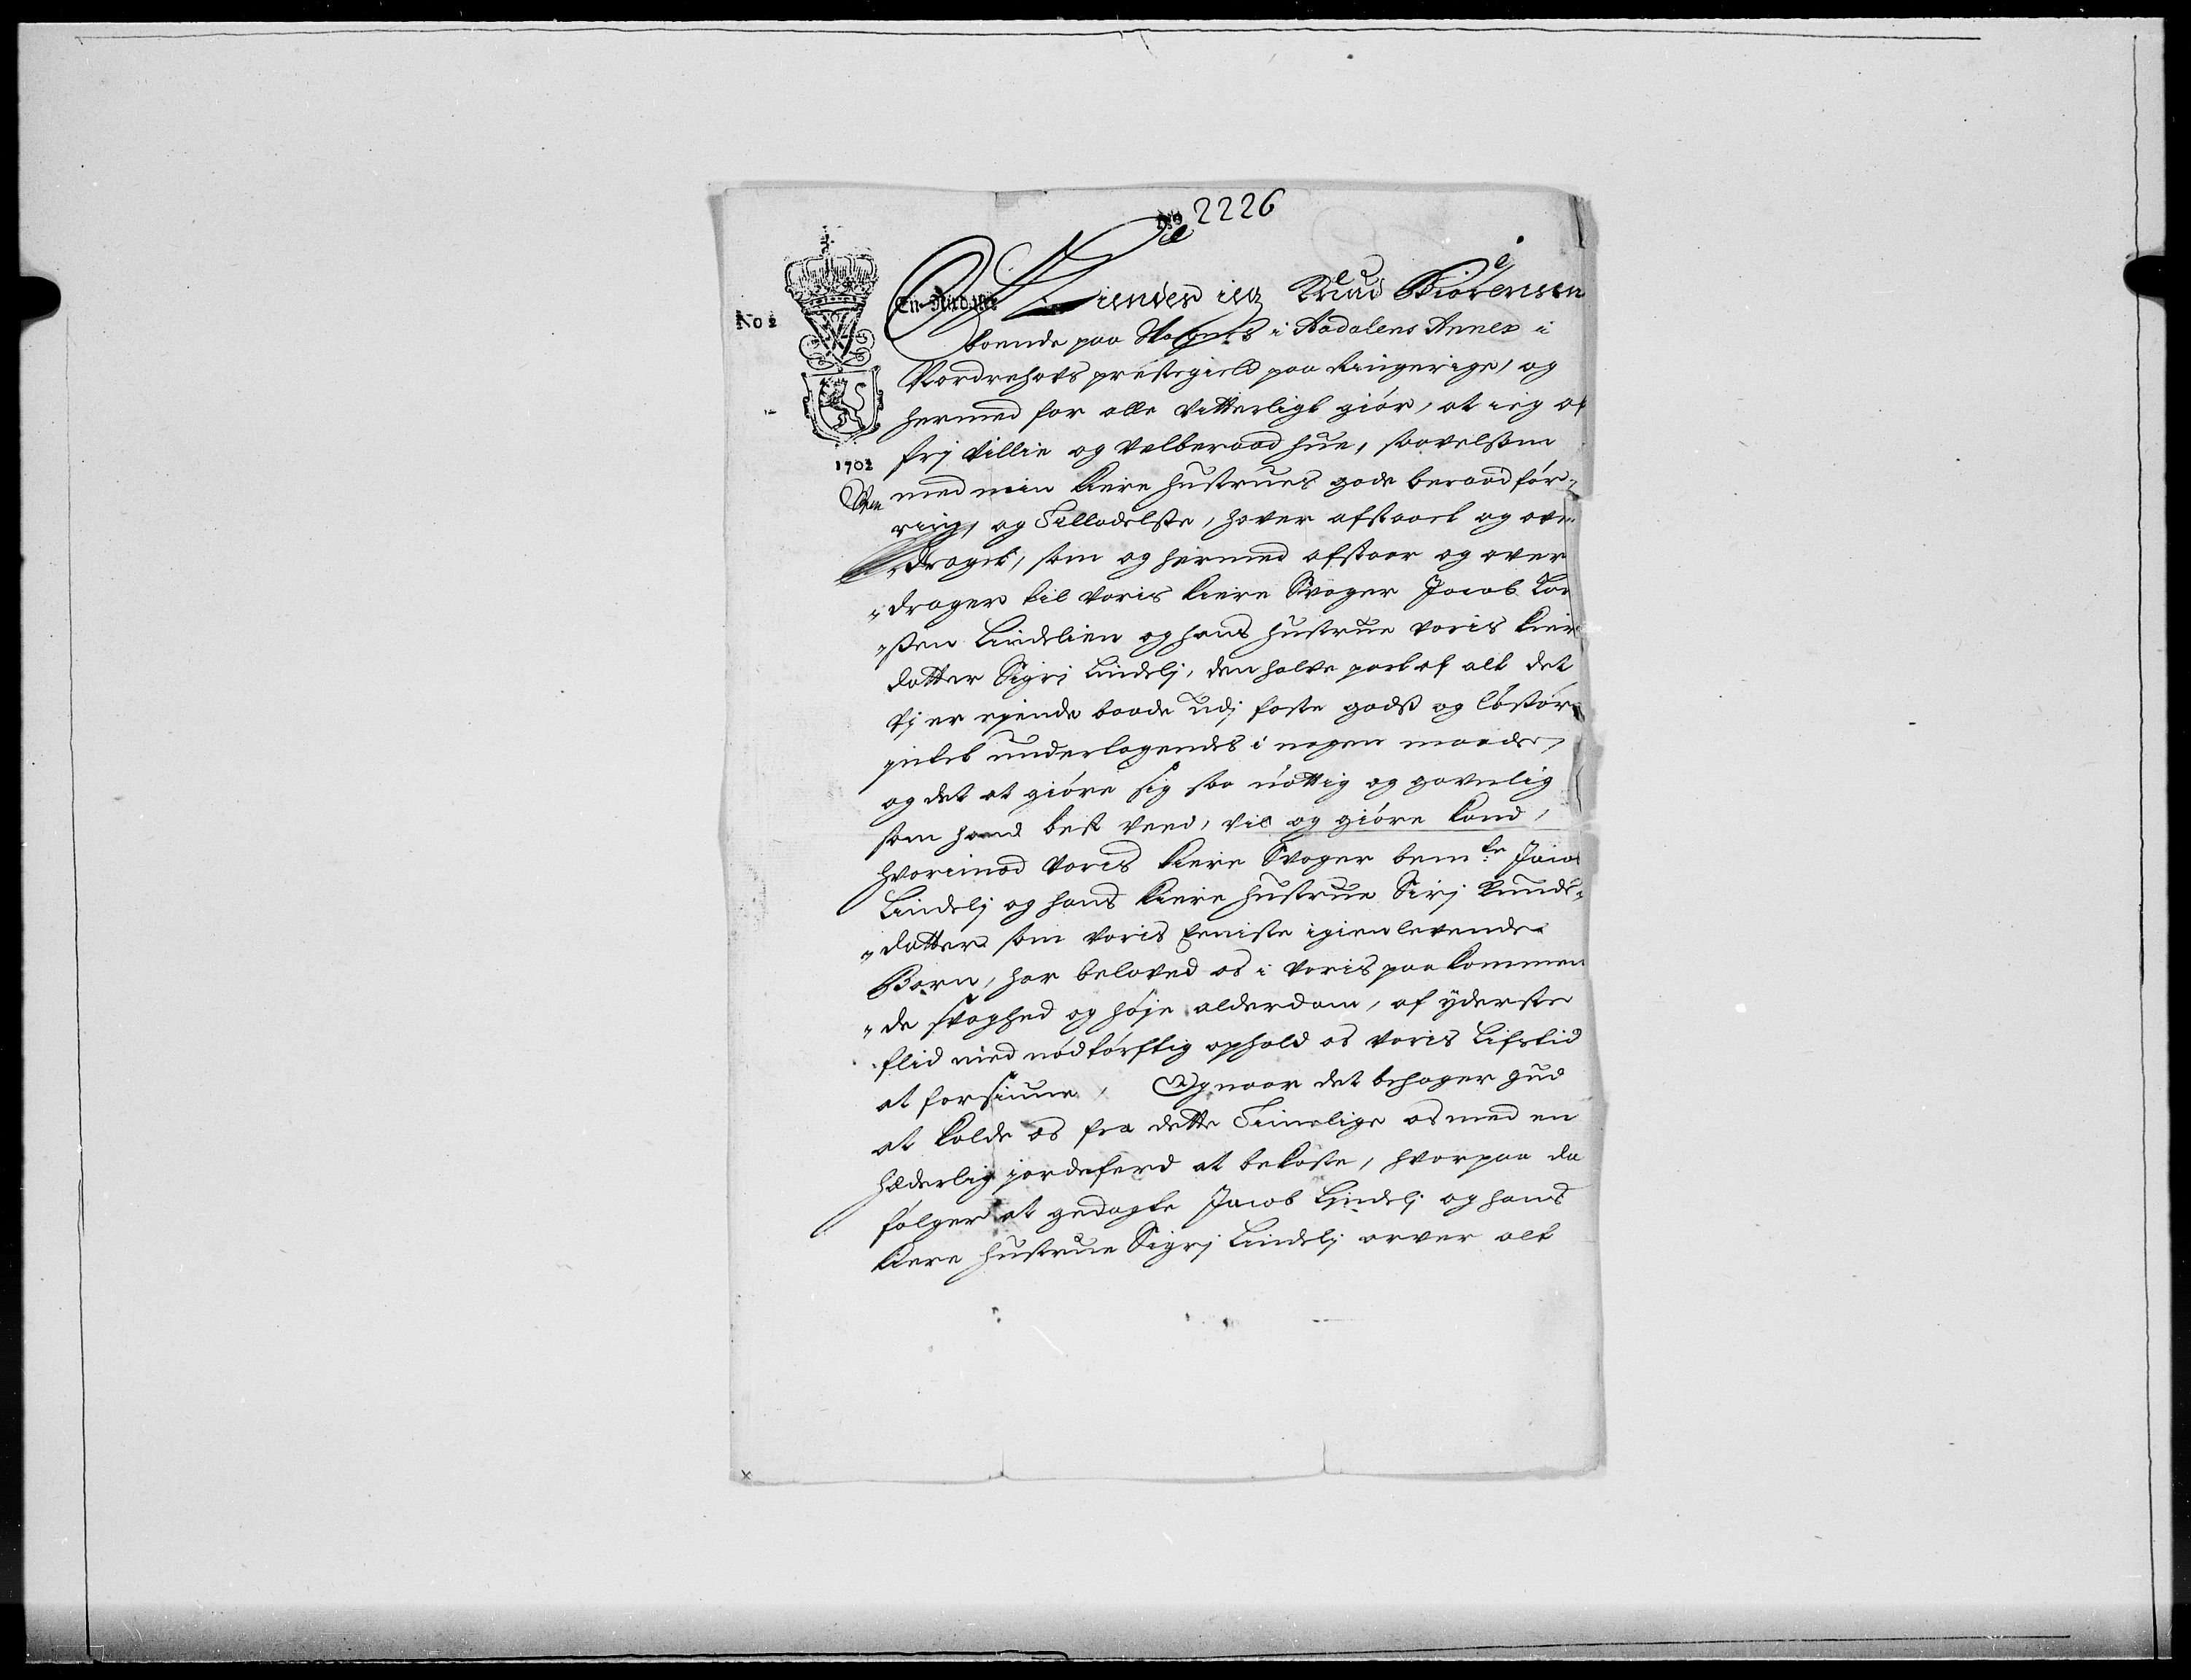 No 2226
No 2
En Rixd. Ort
Kiender ieg Knud Biörensen
boende paa i Aadalens Annex i
Nordrehovs prestegield paa Ringerige, og
hermed for alle vitterligt giör, at ieg af
frj villie og velberaad hue, saavelsom
1702
med min kiere hustrues gode beraadför,,
ring, og Tilladelse, haver afstaaet og over
draget, som og hermed afstaar og over
"drager til voris kiere Svoger Jacob
"sen Lindelien og hans hustrue voris kiere
datter Sigri Lindelj, den halve part af alt det
vj er ejende baade udj faste gods og lösöre
intet undertagendes i nogen maade,
og det at giöre sig saa nöttig og gavnlig
som hand best veed, vil og giöre kand,
hvorimod voris kiere Svoger bemte Jacob
Lindelj og hans kiere hustrue Sirj Knuds,,
"datter som voris Eeniste igienlevende
Barn, har beloved os i voris paakommen
"de svaghed og höje alderdom, af yderste
flid med nödtörftig ophold os voris Lifstid
at forsiune, Og naar det behager Gud
at kalde os fra dette Timelige os med en
hæderlig jordeferd at bekoste, hvorpaa da
fölger at gedagte Jacob Lindelj og hans
kiere hustrue Sigrj Lindelj arver alt